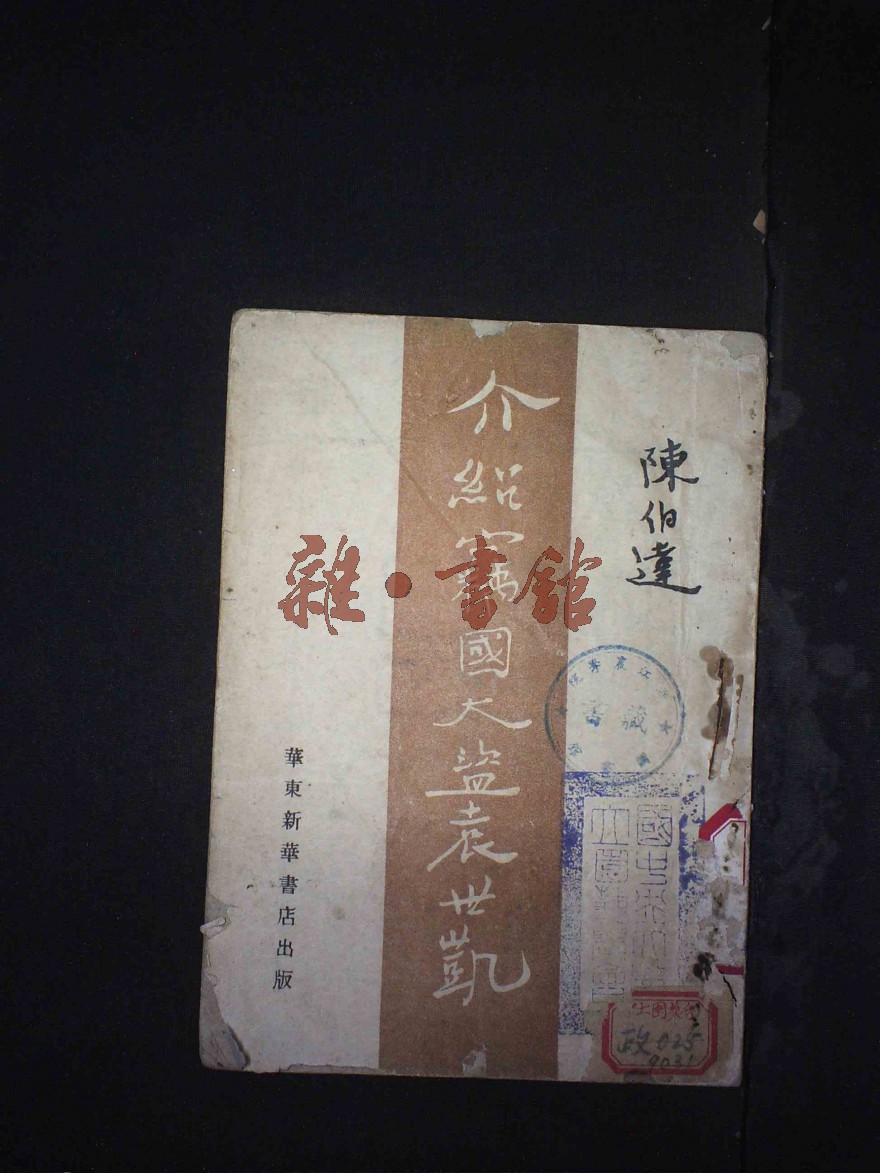 陳伯達
介紹竊國大盜袁世凱
華東新華書店出版
雜·書館
藏書
政025
9031